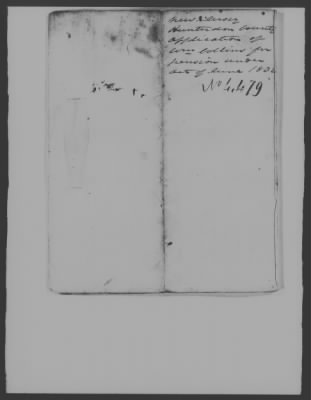 New Jersey
Hunterdon County
Application of
Wm Collins for
pension under
act of June 1832
No 4479